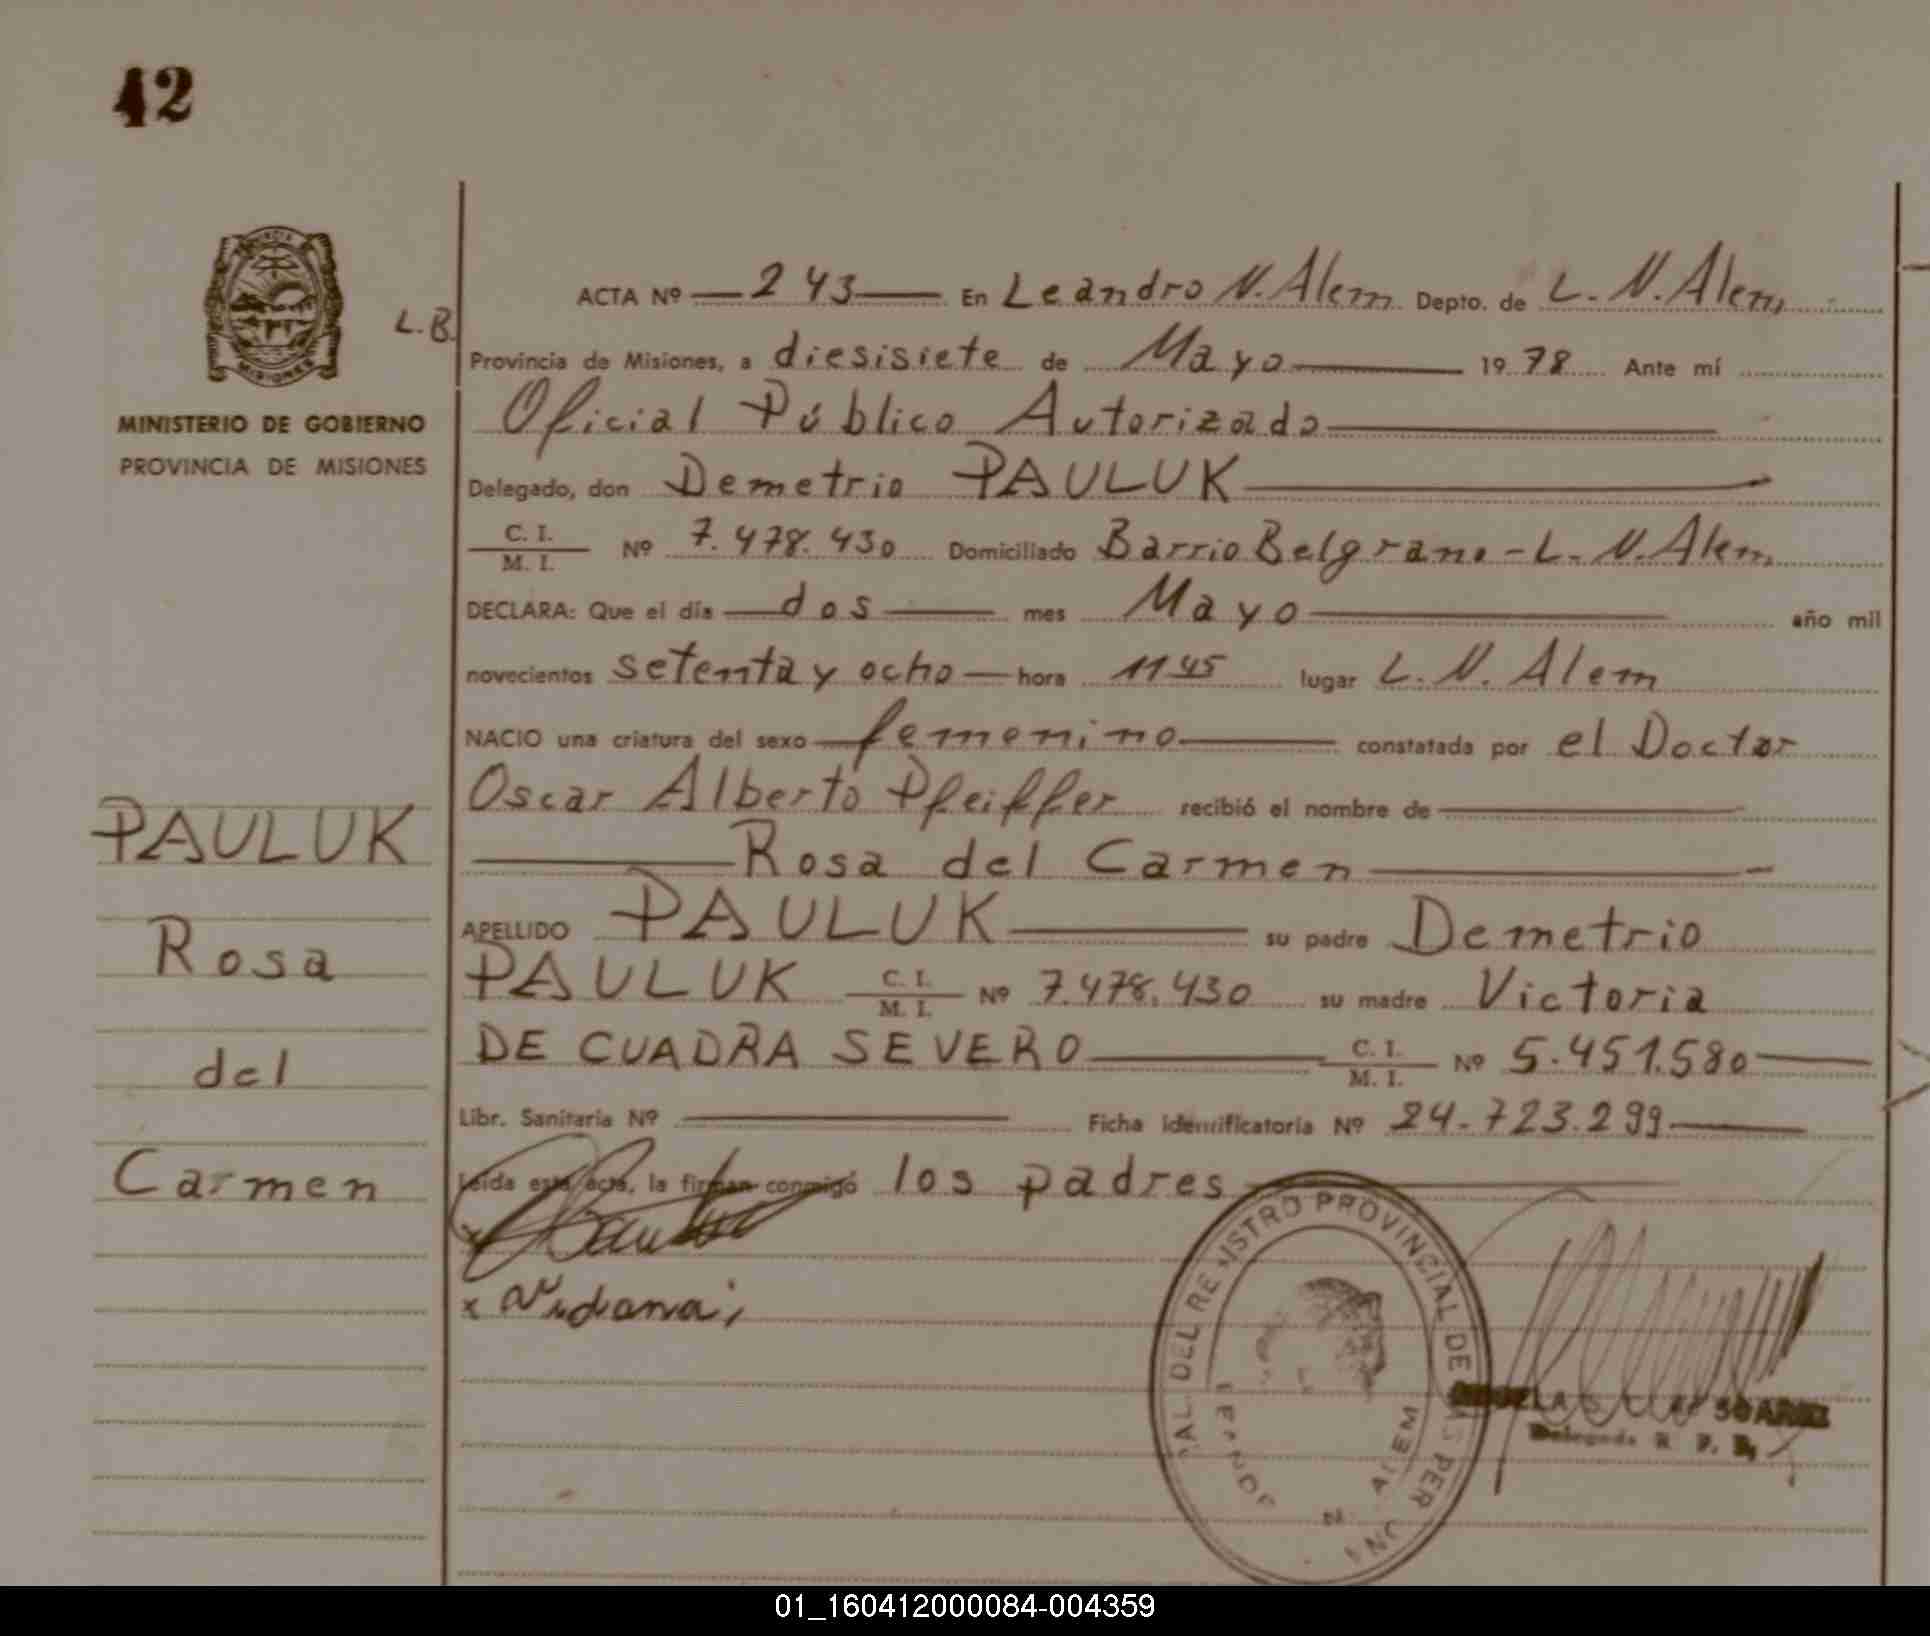 42
MISIONES
L.B.
MINISTERIO DE GOBIERNO
PROVINCIA DE MISIONES
PAULUK
Rosa
del
Carmen
ACTA Nº 243 En Leandro N. Alem Depto. de L. N. Alem
Provincia de Misiones, a diesisiete de Mayo 1978 Ante mí
Oficial Público Autorizado
Delegado, don Demetrio PAULUK
C. I.
M. I. Nº 7.478.430 Domiciliado Barrio Belgrano - L. N. Alem
DECLARA: Que el día dos mes Mayo año mil
novecientos setenta y ocho hora 11 45 lugar L. N. Alem
NACIO una criatura del sexo femenino constatada por el Doctor
Oscar Alberto Pfeiffer recibió el nombre de
Rosa del Carmen
APELLIDO PAULUK su padre Demetrio
PAULUK C. I. M. I. Nº 7.478.430 su madre Victoria
DE CUADRA SEVERO C. I. M. I. Nº 5.451.580
Libr. Sanitaria Nº Ficha identificatoria Nº 24.723.299
Leida esta acta, la firman conmigo los padres
DEL RE ISTRO PROVINCIAL DE PER
N. ALEM
SOAREZ
Delegada R. P. P.
01_160412000084-004359